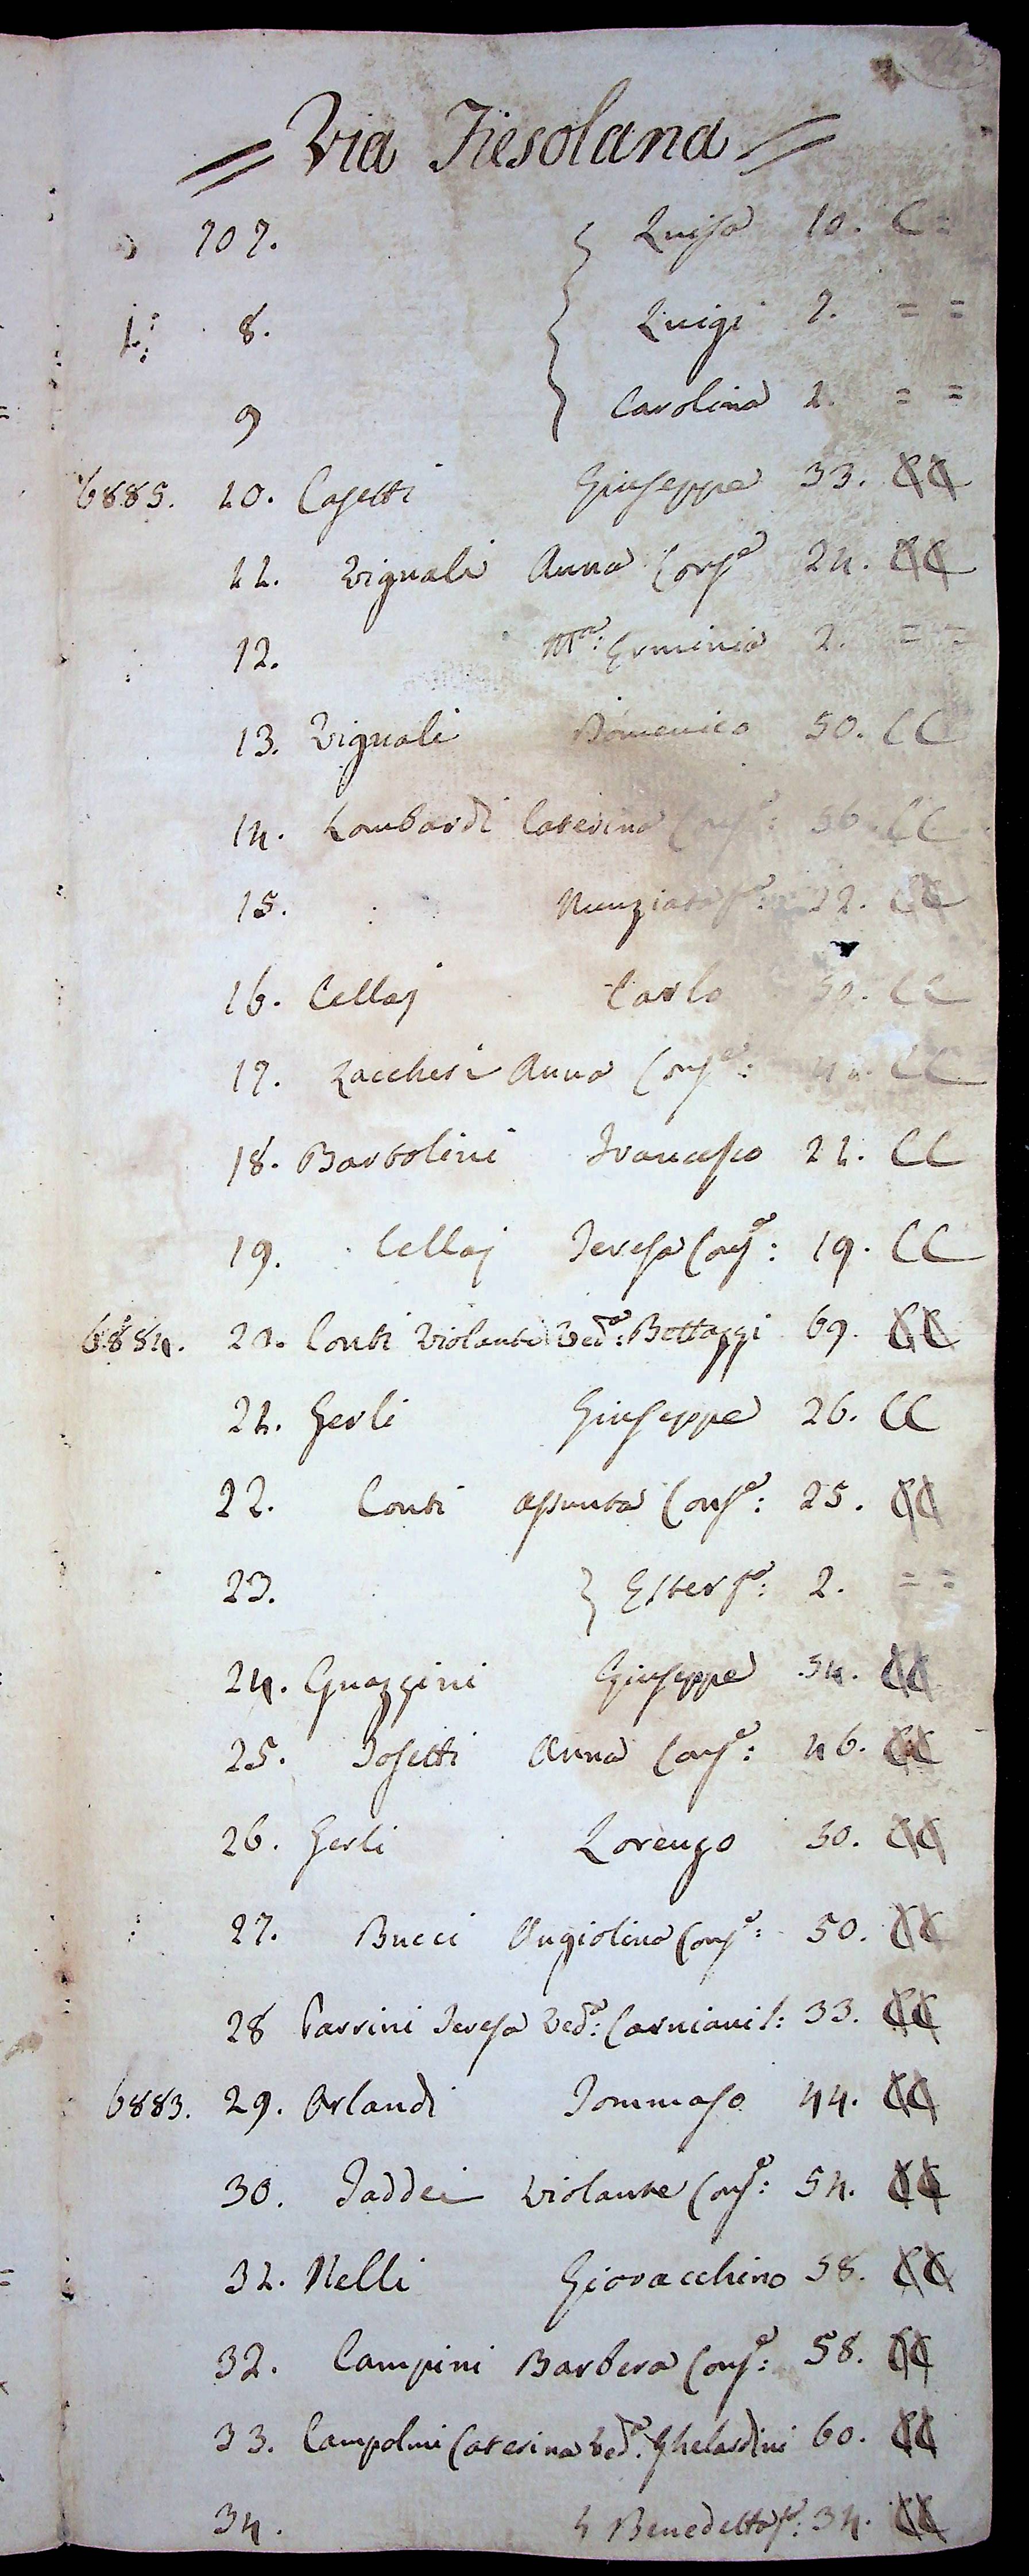 = Via Fiesolana =
707. { Luisa 10. C =
8. Luigi 7. = =
9 Carolina 2. = =
6885. 10. Casetti Giuseppe 33. CC
11. Vignali Anna Conse 24. CC
12. Ma: Erminia 2. = =
13. Vignali Domenico 50. CC
14. Lombardi Caterina Conse: 56. CC
15. Nunziata fa: 22. CC
16. Cellaj Carlo 50. CC
17. Zaccheri Anna Conse: CC
18. Bartolini Francesco 21. CC
19. Cellaj Teresa Conse: 19. CC
6884. 20. Conti Violante Veda: Bottazzi 69. CC
21. Gerli Giuseppe 26. CC
22. Conti Assunta Conse: 25. CC
23. } Ester fa: 2. = =
24. Guazzini Giuseppe 54. CC
25. Tosetti Anna Conse: 46. CC
26. Gerli Lorenzo 50. CC
27. Bucci Angiolina Conse: 50. CC
28 Parrini Teresa Veda: Carniani 33. CC
6883. 29. Orlandi Tommaso 44. CC
30. Taddei Violante Conse: 54. CC
31. Nelli Giovacchino 58. CC
32. Campini Barbera Conse: 58. CC
33. Campolmi Caterina Veda. Ghelardini 60. CC
34. Benedetta fa: 34. CC